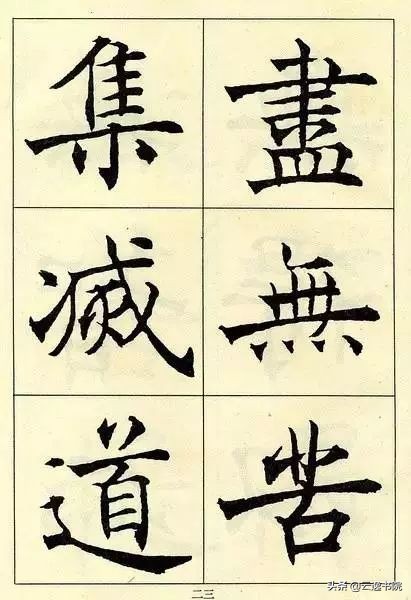 盡無苦
集滅道
二三
头条@云逸书院